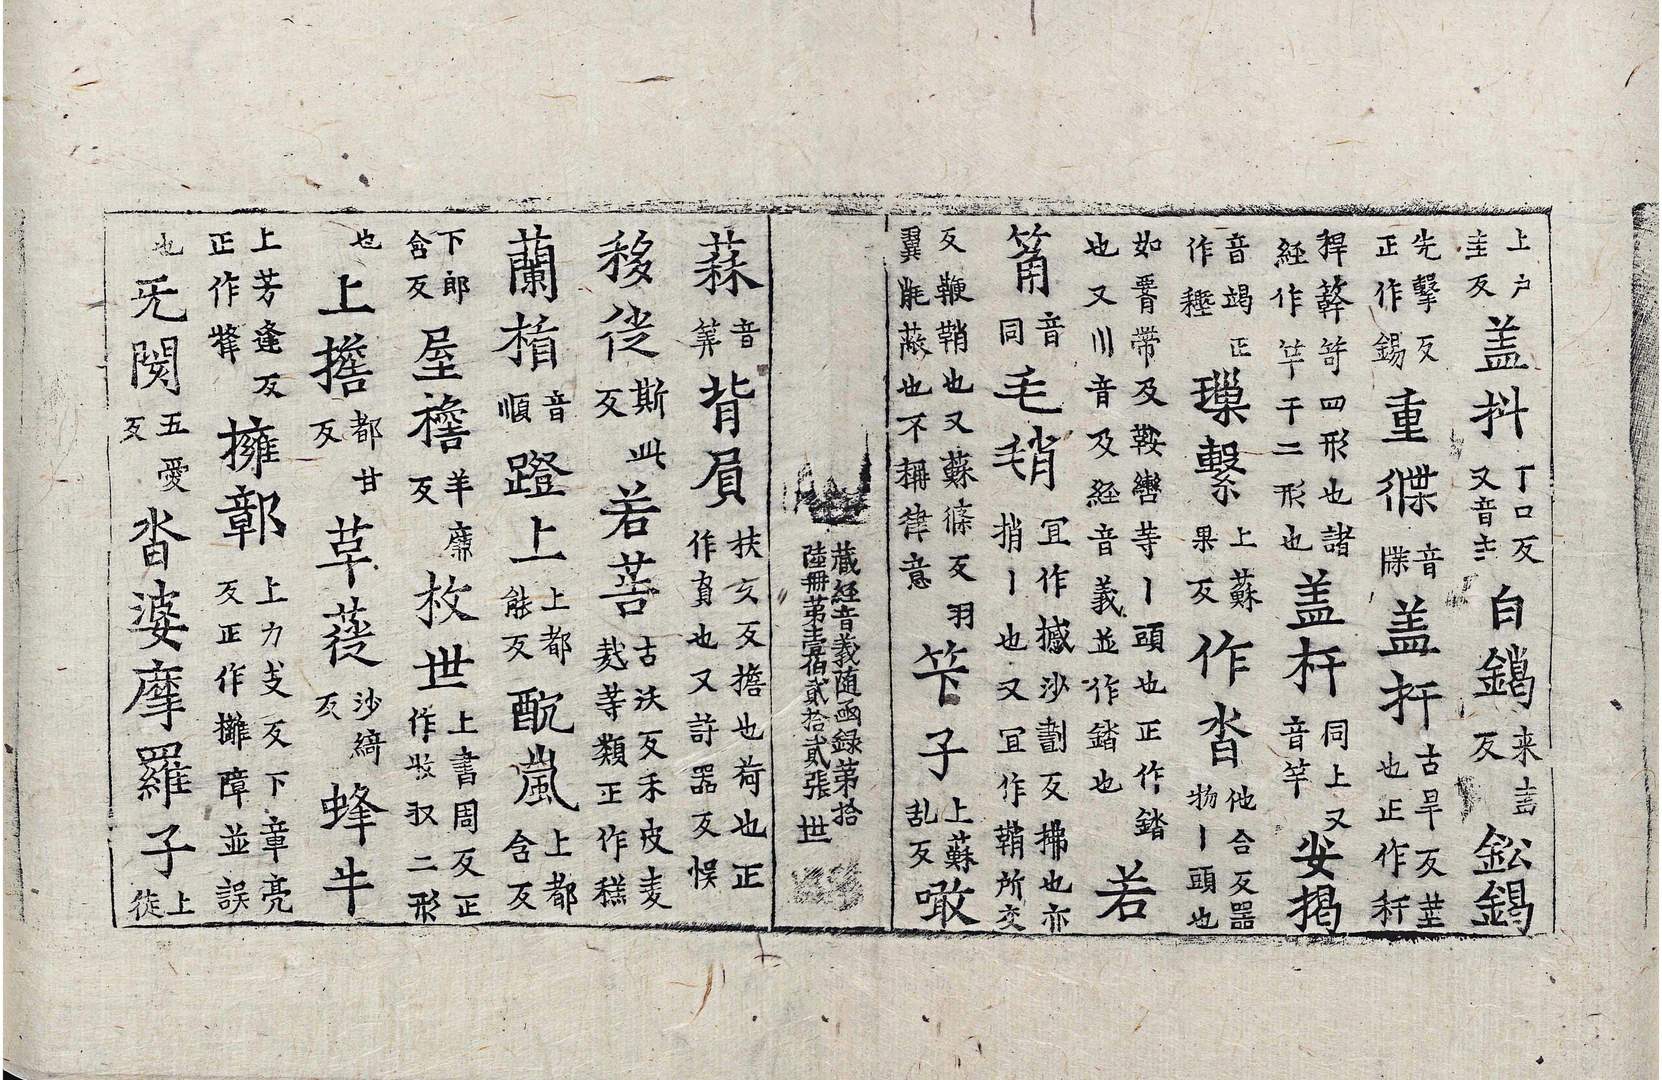 上戶圭反盖抖丁口反又音主白鍻来盍反鈆鍻
先擊反正作錫重㦸音牒盖扞古旱反莖也正作秆
稈簳笴四形也諸経作竿干二形也盖杆同上又音竿安揭
音竭正作㯰璅繫上蘇果反作沓他合反器物丨頭也
如䙅帶及鞍轡等丨頭也正作錔也又川音及経音義並作錔也若
箾音同毛䎿宜作撼沙劃反拂也亦捎丨也又宜作鞘所交
反鞭鞘也又蘇條反羽翼㲚蔽也不稱律意笇子上蘇乱反噉
藏経音義随函録第拾陸冊第壹伯貳拾貳張 世
蒜音筭背屓扶亥反擔也荷也正作負也又許器反悮
移徙斯此反若䓁古沃反禾皮麦裁等類正作䅵
蘭楯音順蹬上上都能反酖嵐上都含反
下郎含反屋檐羊廉反枚世上書周反正作収𠬧二形
也上擔都甘反草蓰沙綺反蜂牛
上芳逢反正作犎擁鄣上力支反下章亮反正作攡障並誤
也旡閡五愛反沓婆摩羅子上徒